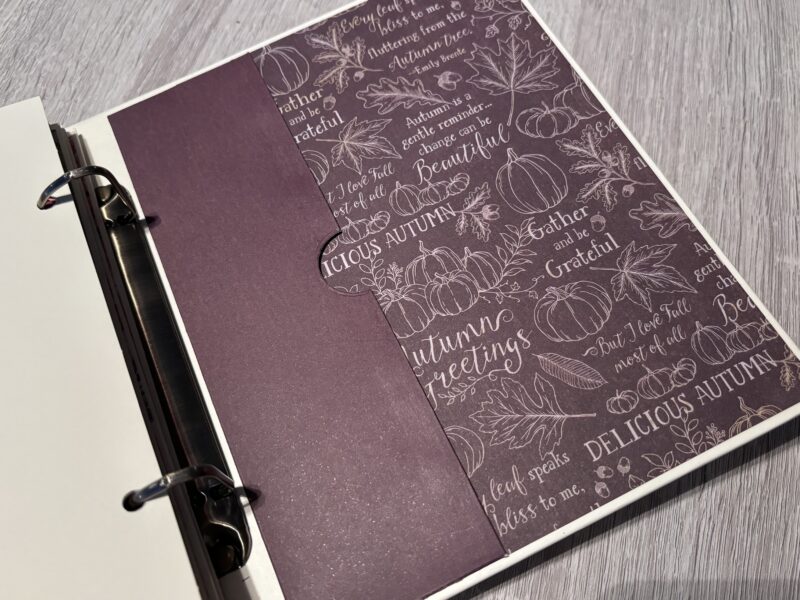 Every leaf sp
bliss to me,
fluttering from the
Autumn tree.
~Emily Bronte
Gather
and be
Grateful
Autumn is a
gentle reminder...
change can be
Beautiful
But I love Fall
most of all
DELICIOUS AUTUMN
Gather
and be
Grateful
Autumn
Greetings
~But I love Fall
most of all
Au
gent
cha
Bea
DELICIOUS AUTUMN
leaf speaks
bliss to me,